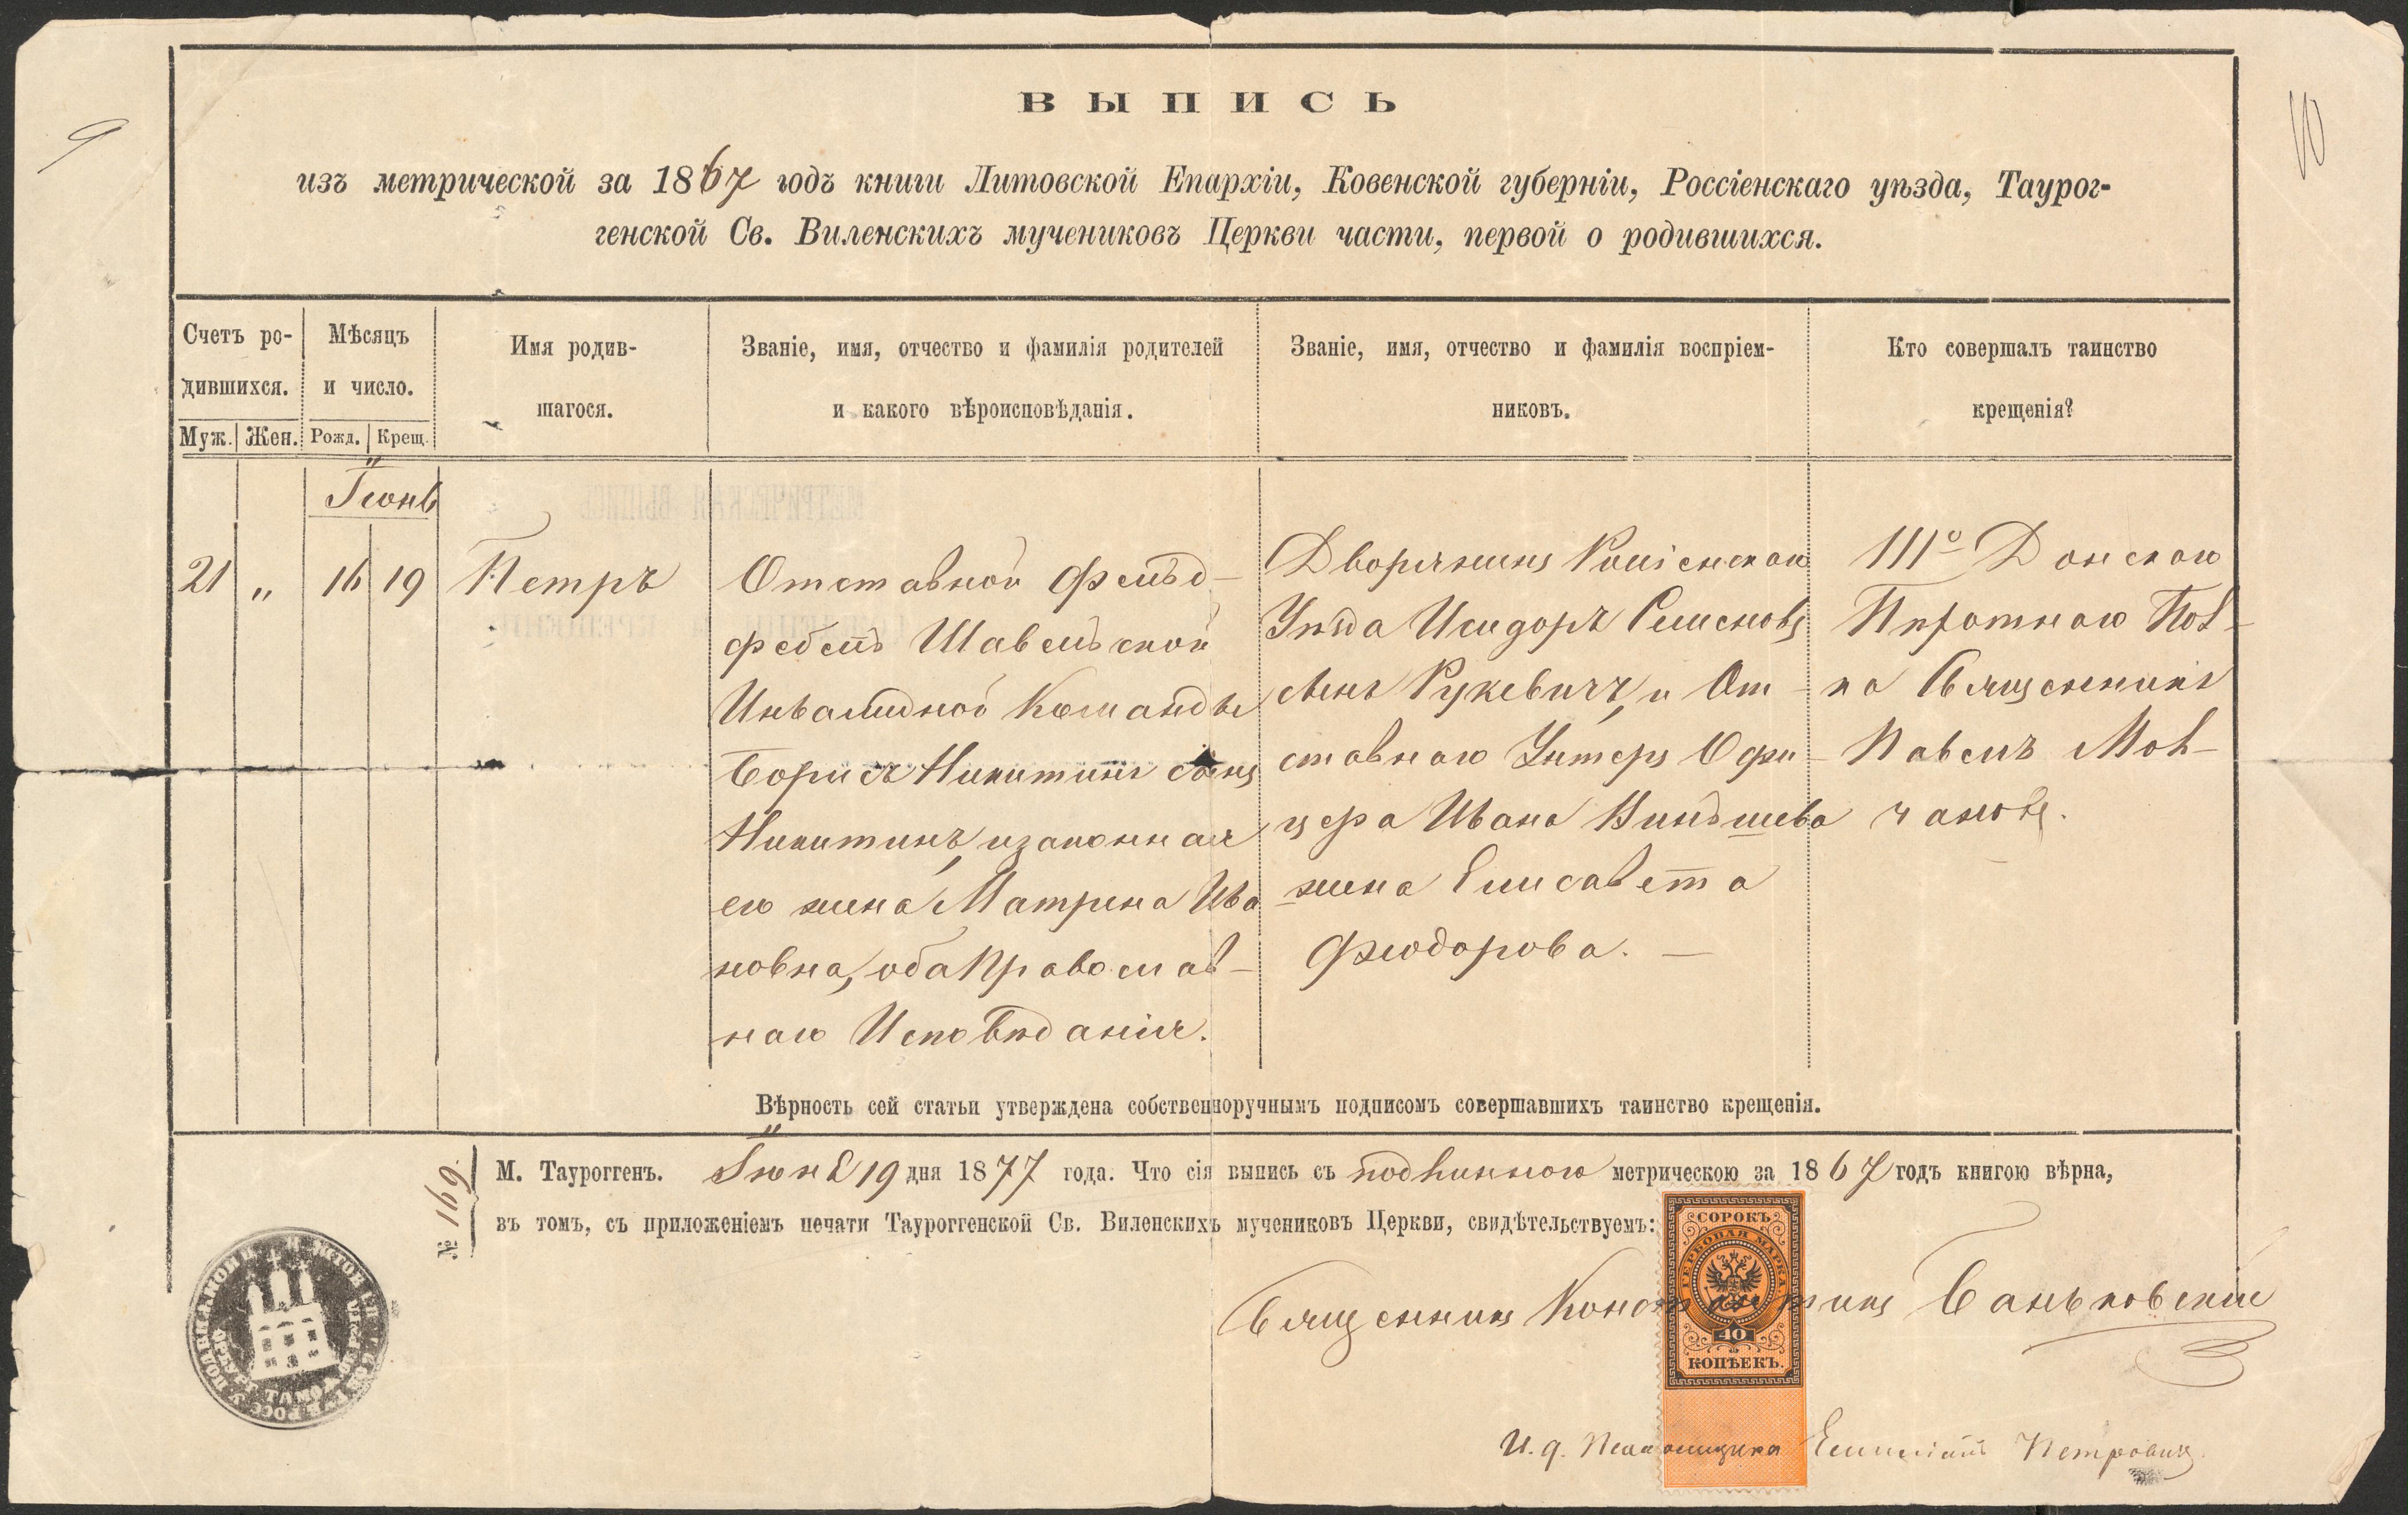 9
10
ВЫПИСЬ
изъ метрической за 1867 годъ книги Литовской Епархіи, Ковенской губерніи, Россіенскаго уѣзда, Таурог-
генской Св. Виленскихъ мучениковъ Церкви части, первой о родившихся.
Счетъ ро-
дившихся.
Муж. Жен.
Мѣсяцъ
и число.
Рожд. Крещ.
Имя родив-
шагося.
Званіе, имя, отчество и фамилія родителей
и какого вѣроисповѣданія.
Званіе, имя, отчество и фамилія воспріем-
никовъ.
Кто совершалъ таинство
крещенія?
Іюнь
21 „ 16 19
Петръ
Отставной Фельд-
фебель Шавельской
Инвалидной Команды
Борисъ Никитинъ сынъ
Никитинъ, изаконная
его жена Матрена Ива
новна, оба Православ-
наго Исповѣданія.
Дворянинъ Росіенскаго
Уѣзда Исидоръ Семеновъ
сынъ Рукевичъ, и От-
ставнаго Унтеръ Офи-
цера Ивана
жена Елисавета
Феодорова. —
111º Донскаго
Пѣхотнаго Пол-
ка Священникъ
Павелъ Мол-
чановъ.
Вѣрность сей статьи утверждена собственноручнымъ подписомъ совершавшихъ таинство крещенія.
№ 169.
М. Тауроггенъ. Іюня 19 дня 1877 года. Что сія выпись съ подлинною метрическою за 1867 годъ книгою вѣрна,
въ томъ, съ приложеніемъ печати Тауроггенской Св. Виленскихъ мучениковъ Церкви, свидѣтельствуемъ:
СОРОКЪ
ГЕРБОВАЯ МАРКА
40
КОПѢЕКЪ.
Священникъ Константинъ Баньковскій
И. д. Псаломщика Емиліанъ Петровичъ.